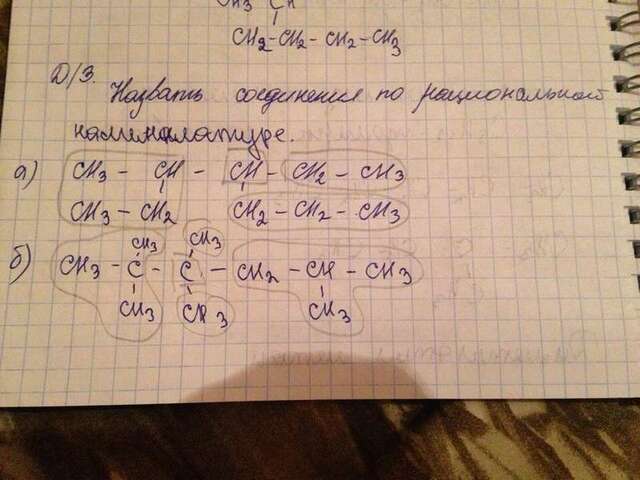 CH3 CH
CH2-CH2-CH2-CH3
Д/З.
Назвать соединения по рациональной
наменклатуре.
а) CH3 - CH - CH - CH2 - CH3
CH3 - CH2 CH2 - CH2 - CH3
CH3 CH3
б) CH3 - C - C - CH2 - CH - CH3
CH3 CH3 CH3